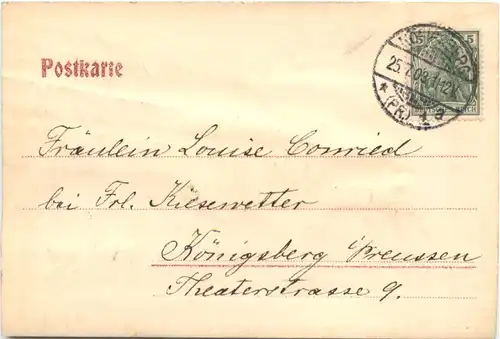 Postkarte
5
25.7.03
(PR.) 1
Fräulein Louise Conried
bei Frl. Kiesewetter
Königsberg Preussen
Theaterstrasse 9.